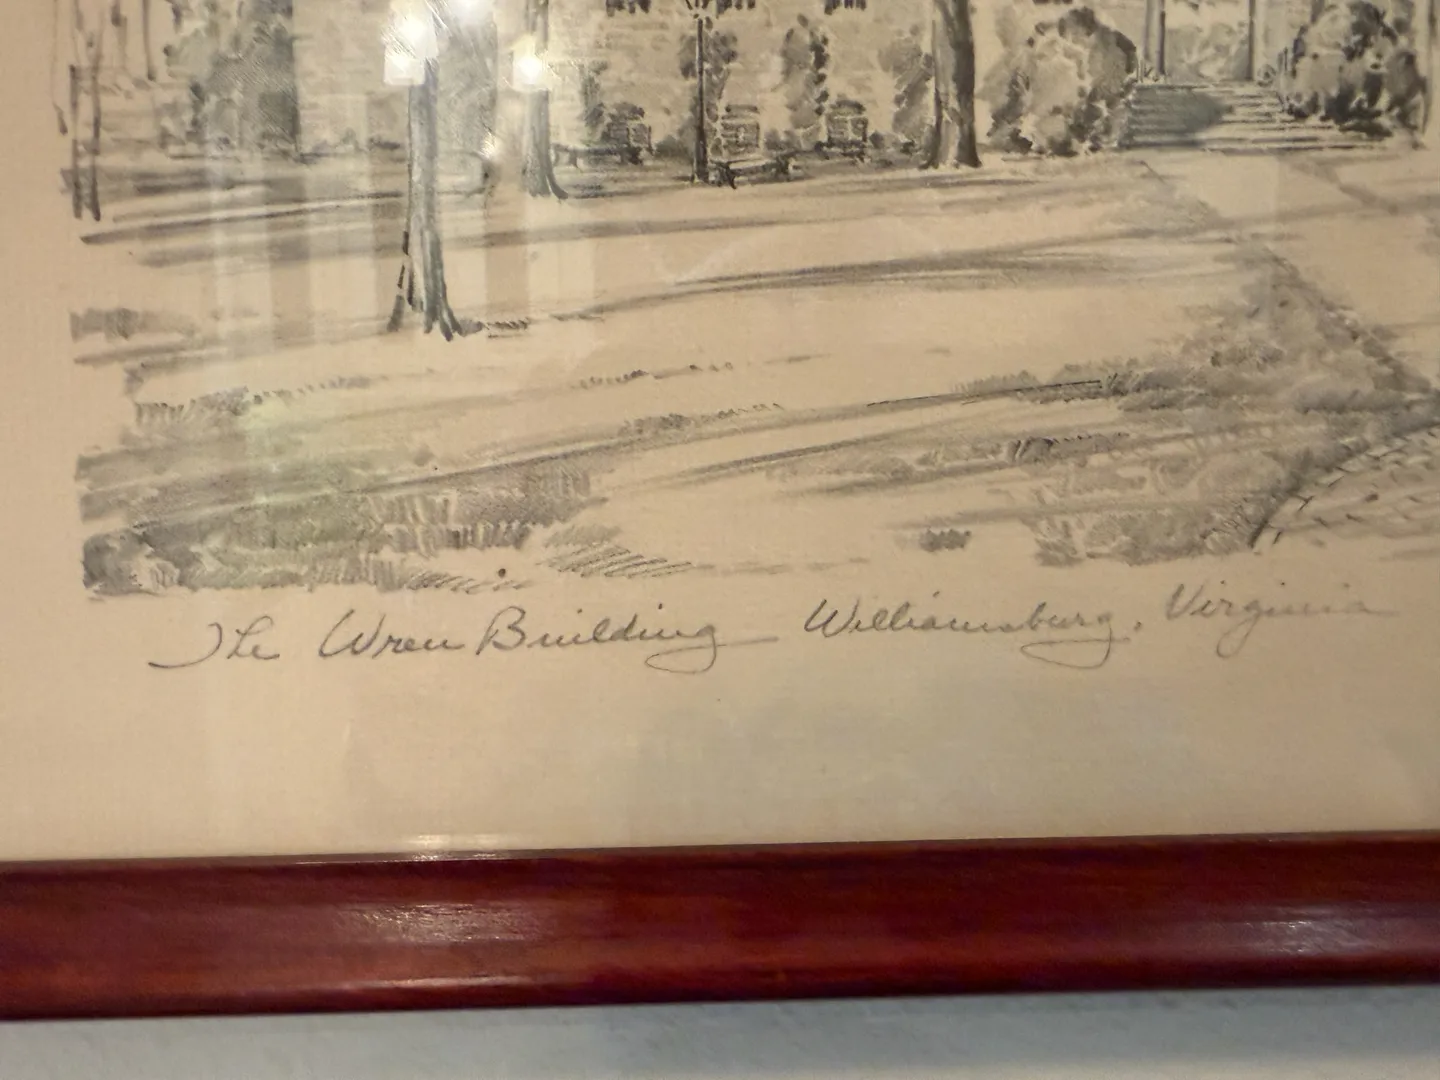 The Wren Building Williamsburg, Virginia